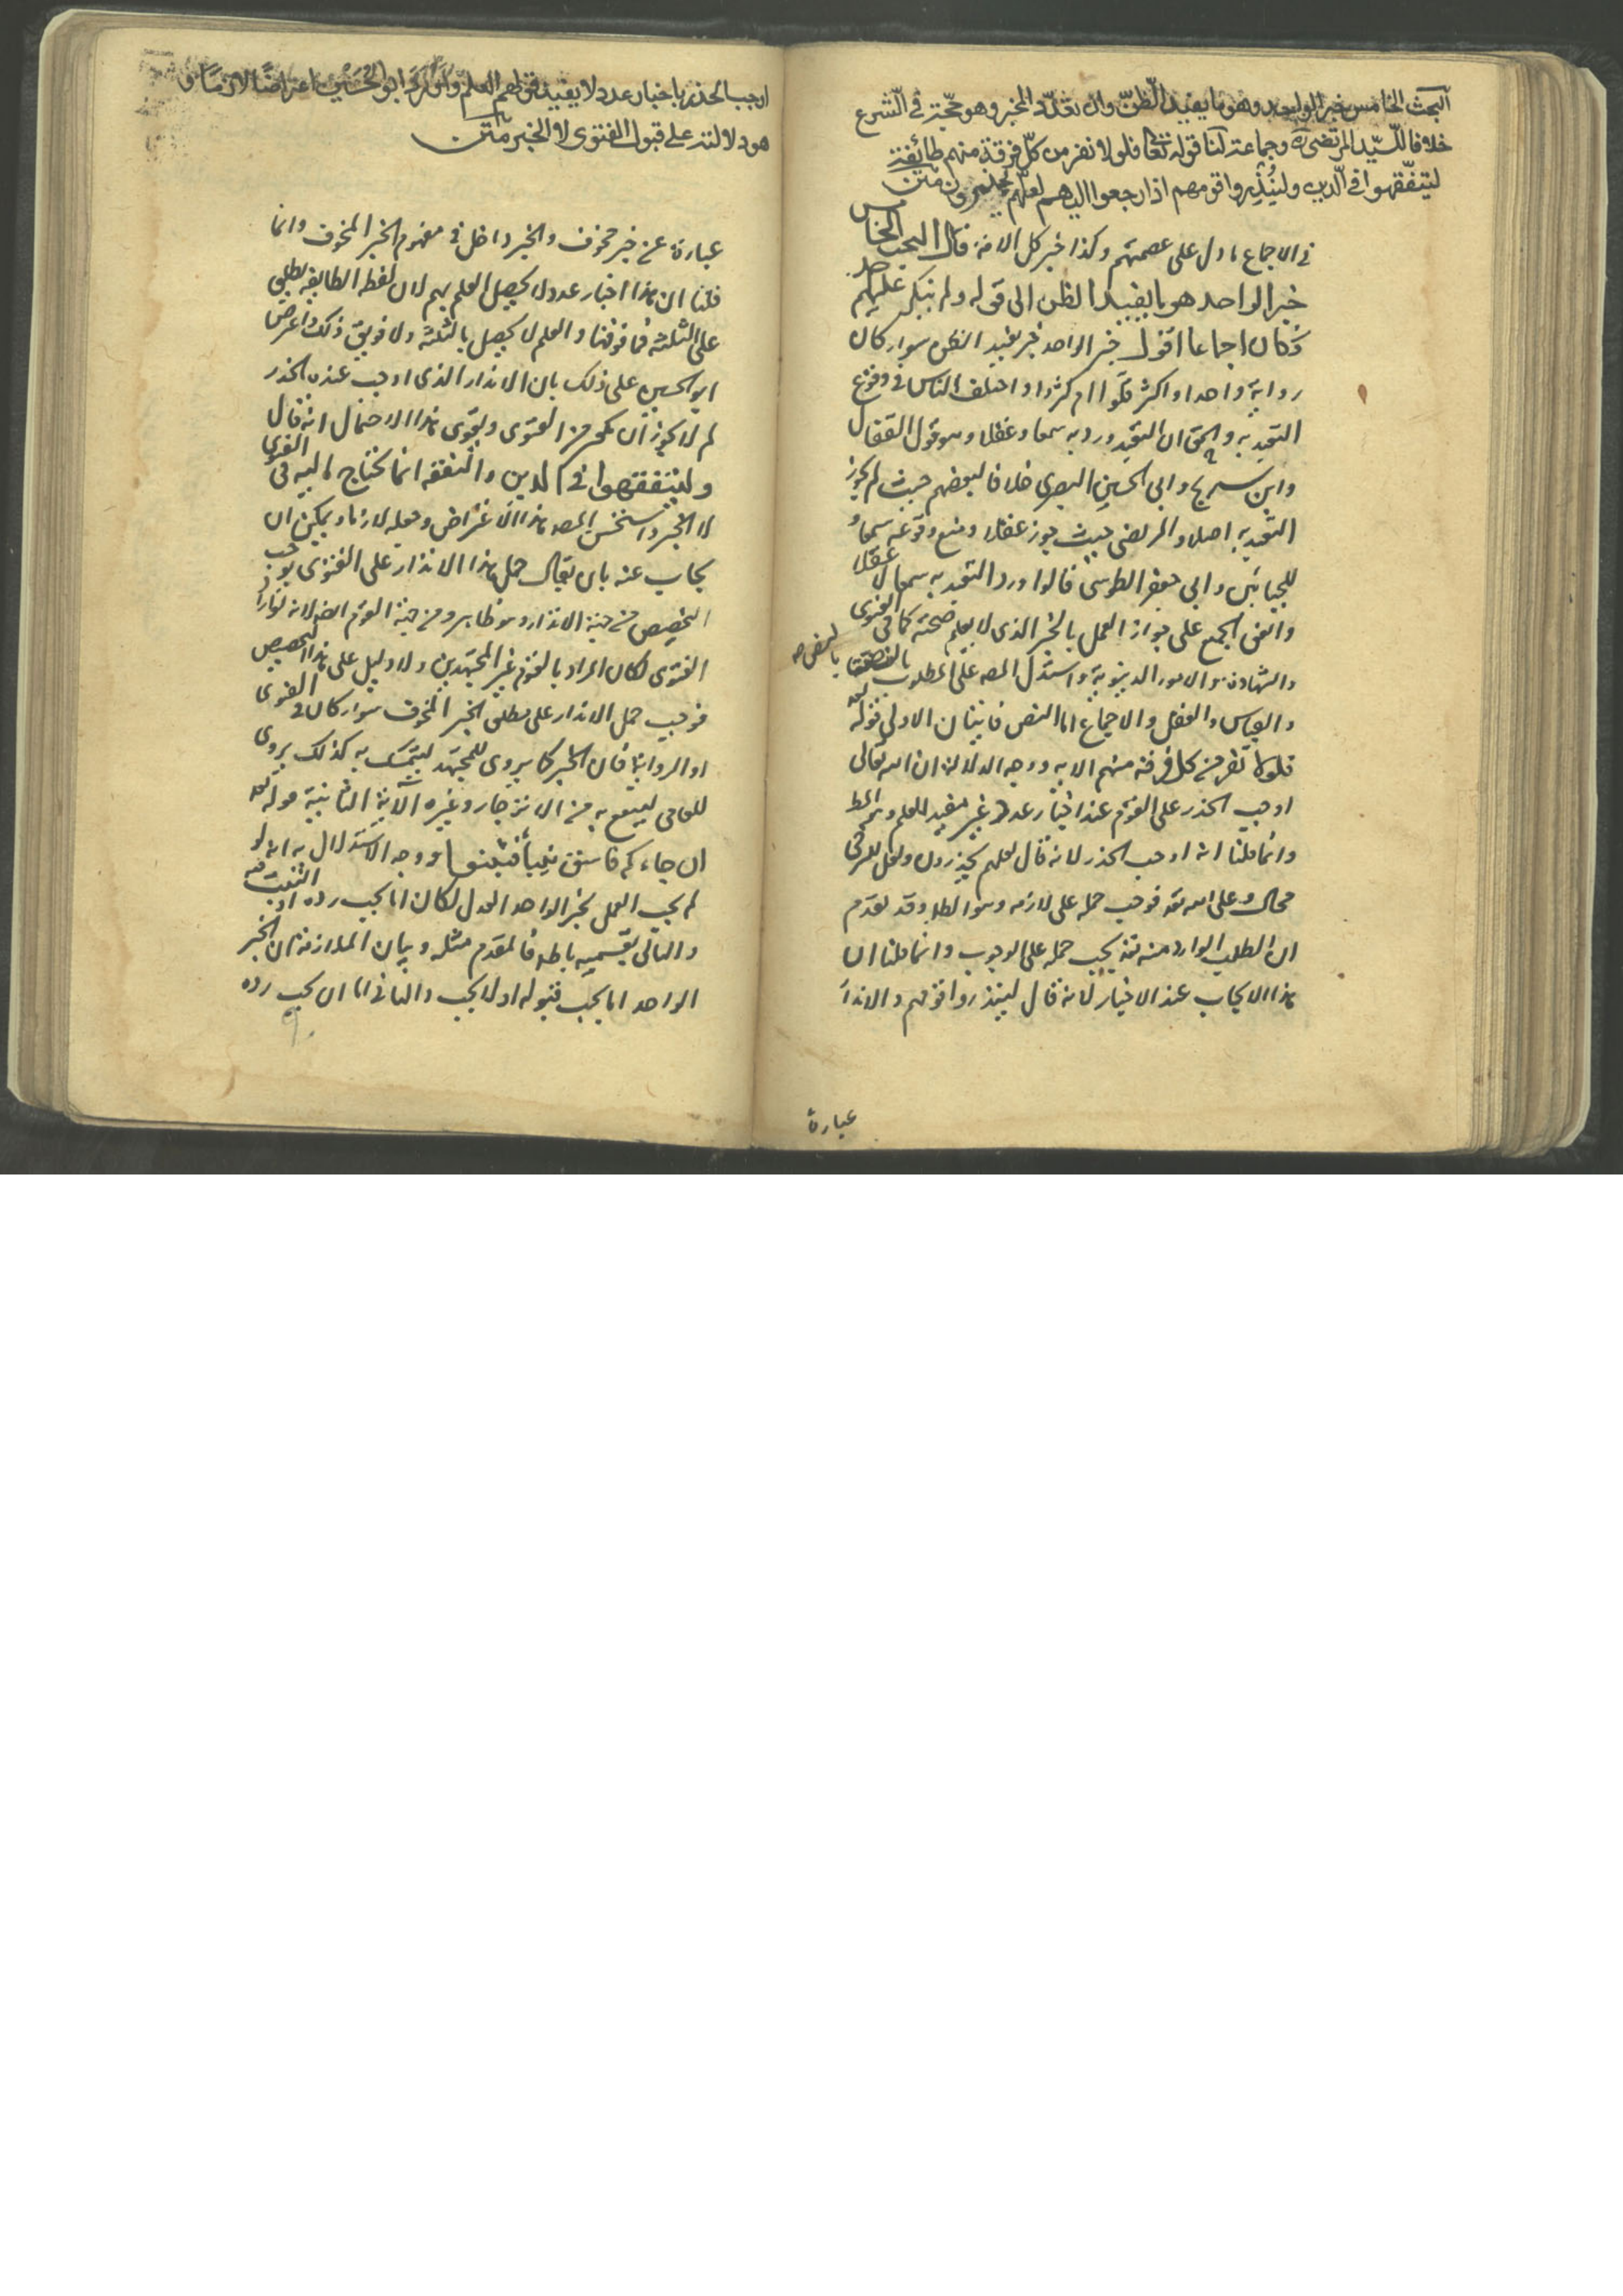 البحث الخامس خبر الواحد وهو ما يفيد الظنّ وان تعدّد المخبر وهو حجّة في الشرع
خلافا للسّيد المرتضى ره وجماعة لنا قوله تعالى فلولا نفر من كلّ فرقة منهم طائفة
ليتفّقهوا في الّدين ولينُذِروا قومهم اذا رجعوا اليهم لعلّهم يحذرون متن
في الاجماع ما دل على عصمتهم وكذا خبر كل الامة قال البحث الخامس
خبر الواحد هو ما يفيد الظن الى قوله ولم ينكر عليهم احد
فكان اجماعا اقول خبر الواحد خبر يفيد الظن سواء كان
رواية واحدا او اكثر قلّوا ام كثروا واختلف الناس في وقوع
التعبد به والحق ان التعبد ورد به سمعا وعقلا وهو قول القفال
وابن سريج وابي الحسين البصري خلافا لبعضهم حيث لم يجوز
التعبد به اصلا والمرتضى حيث جوز عقلا ومنع وقوعه سمعا و
للجبائين وابي جعفر الطوسي قالوا ورد التعبد به سمعا لا عقلا
واتفق الجميع على جواز العمل بالخبر الذي لا يعلم صحته كما في الفتوى
والشهادة والامور الدنيوية واستدل المصه على المطلوب بالنص
بالنص صه
والقياس والعقل والاجماع اما النص فآيتان الاولى قوله تعه
فلولا نفر من كل فرقة منهم الايه ووجه الدلالة ان الله تعالى
اوجب الحذر على القوم عند اخبار عدد غير مفيد للعلم وهو المط
وانما قلنا انه اوجب الحذر لانه قال لعلهم يحذرون ولعل للترجي
محال على الله تعه فوجب حمله على لازمه وهو الطلب وقد تقدم
ان الطلب الوارد منه تعه يجب حمله على الوجوب وانما قلنا ان
هذا الايجاب عند الاخبار لانه قال لينذروا قومهم والانذار
عبارة
اوجب الحذر باخبار عدد لا يفيد قولهم العلم وأورد ابو الحُسَيْن اعتراضًا لازمًا و
هو دلالته على قبول الفتوى لا الخبر متن
عبارة عن خبر مخوف والخبر داخل في مفهوم الخبر المخوف وانما
قلنا ان هذا اخبار عدد لا يحصل العلم بهم لان لفظ الطايفه يطلق
على الثلثه فما فوقها والعلم لا يحصل بالثلثه ولا فويق ذلك واعترض
ابو الحسين على ذلك بان الانذار الذي اوجب عنده الحذر
لم لا يجوز ان يكون من الفتوى ويقوى هذا الاحتمال انه قال
وليتفقهوا في الدين والتفقه انما يحتاج اليه في الفتوى
لا الخبر واستحسن المصه هذا الاعتراض وجعله لازما ويمكن ان
يجاب عنه بان يقال حمل هذا الانذار على الفتوى يوجب
التخصيص من حيث الانذار وهو ظاهر ومن حيث القوم ايضا لانه لو اراد
الفتوى لكان المراد بالقوم غير المجتهدين ولا دليل على هذا التخصيص
فوجب حمل الانذار على مطلق الخبر المخوف سواء كان في الفتوى
او الرواية فان الخبر كما يروى للمجتهد ليتمسك به كذلك يروى
للعامي لينتفع به من الانزجار وغيره الآية الثانية قوله تعه
ان جاءكم فاسق بنبأ فتبينوا ووجه الاستدلال به انه لو
لم يجب العمل بخبر الواحد العدل لكان اما يجب رده او التثبت فيه
والتالي بقسميه باطل فالمقدم مثله وبيان الملازمة ان الخبر
الواحد اما يجب قبوله او لا يجب والثاني اما ان يجب رده